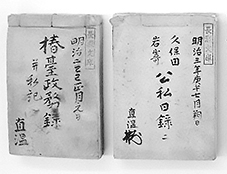 明治二己巳正月元日
椿臺政務録
并私記
直温
明治三年庚午七月朔日
久保田
岩崎
公私日録 二
直温